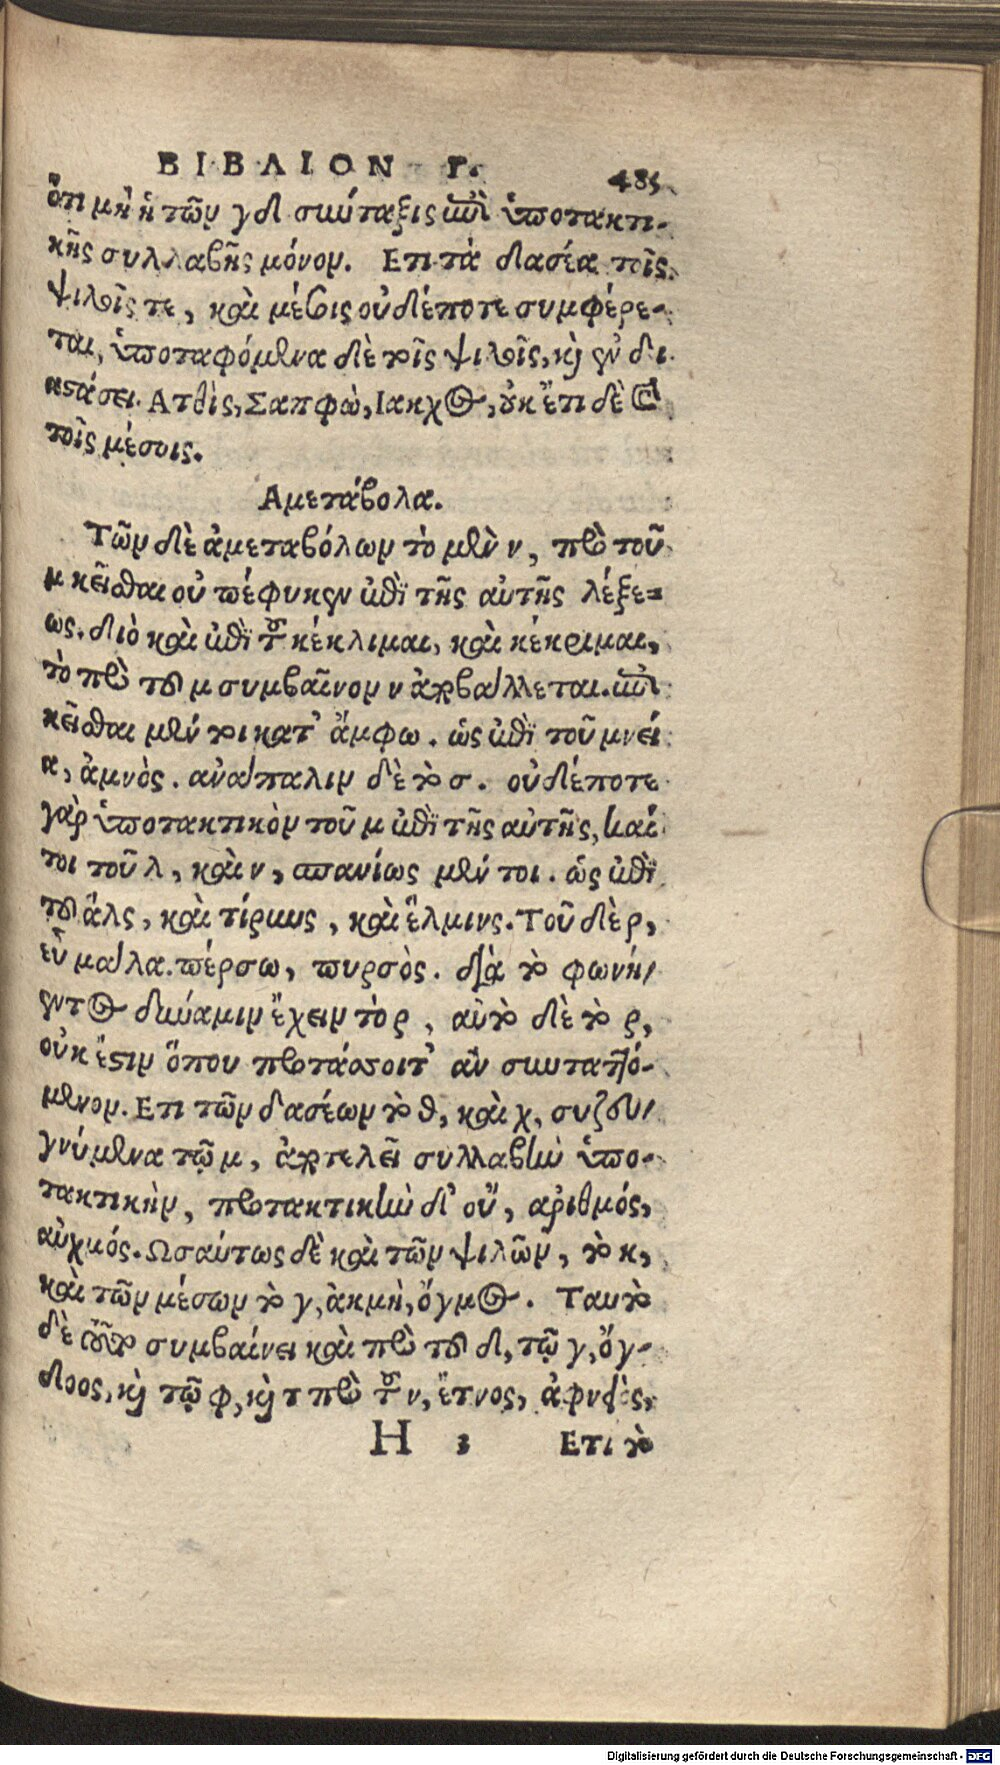 ΒΙΒΛΙΟΝ Γ. 485
ὅτι μὴ ἡ τῶν γδ σύνταξις ἐπὶ ὑποτακτι-
κῆς συλλαβῆς μόνον. Ετι τὰ δασέα τοῖς
ψιλοῖς τε, καὶ μέσοις οὐδέποτε συμφέρε-
ται, ὑποτασσόμενα δὲ τοῖς ψιλοῖς, καὶ ἐν δι
αστάσει. Ατθὶς, Σαπφὼ, Ιακχος, οὐκ ἔτι δὲ καὶ
τοῖς μέσοις.
Αμετάβολα.
Τῶν δὲ ἀμεταβόλων τὸ μὲν ν, πρὸ τοῦ
μ κεῖσθαι οὐ πέφυκεν ἐπὶ τῆς αὐτῆς λέξε=
ως. διὸ καὶ ἐπὶ τοῦ κέκλιμαι, καὶ κέκριμαι,
τὸ πρὸ τοῦ μ συμβαῖνον ν ἀποβάλλεται. ἐπι
κεῖσθαι μέντοι κατ' ἄμφω. ὡς ἐπὶ τοῦ μνεί
α, ἀμνὸς. ἀνάπαλιν δὲ τὸ σ. οὐδέποτε
γὰρ ὑποτακτικὸν τοῦ μ ἐπὶ τῆς αὐτῆς, καί
τοι τοῦ λ, καὶ ν, σπανίως μέντοι. ὡς ἐπὶ
τοῦ ἅλς, καὶ τίρυνς, καὶ ἕλμινς. Τοῦ δὲ ρ,
εὖ μάλα. πέρσω, πυρσὸς. διὰ τὸ φωνή/
εντος δύναμιν ἔχειν τὸ ρ, αὐτὸ δὲ τὸ ρ,
οὐκ ἔστιν ὅπου προτάσσοιτ' ἂν συνταττό-
μενον. Ετι τῶν δασέων τὸ θ, καὶ χ, συζευ/
γνύμενα τῷ μ, ἀποτελεῖ συλλαβὴν ὑπο-
τακτικὴν, προτακτικὴν δ' οὔ, ἀριθμός,
αὐχμός. Ωσαύτως δὲ καὶ τῶν ψιλῶν, τὸ κ,
καὶ τῶν μέσων τὸ γ, ἀκμὴ, ὄγμος. Ταυτὸ
δὲ τοῦτο συμβαίνει καὶ πρὸ τοῦ δ, τῷ γ, ὄγ-
δοος, καὶ τῷ φ, καὶ τ πρὸ τοῦ ν, ἔτνος, ἀφνεὸς,
H 3 Ετι τὸ
Digitalisierung gefördert durch die Deutsche Forschungsgemeinschaft - DFG